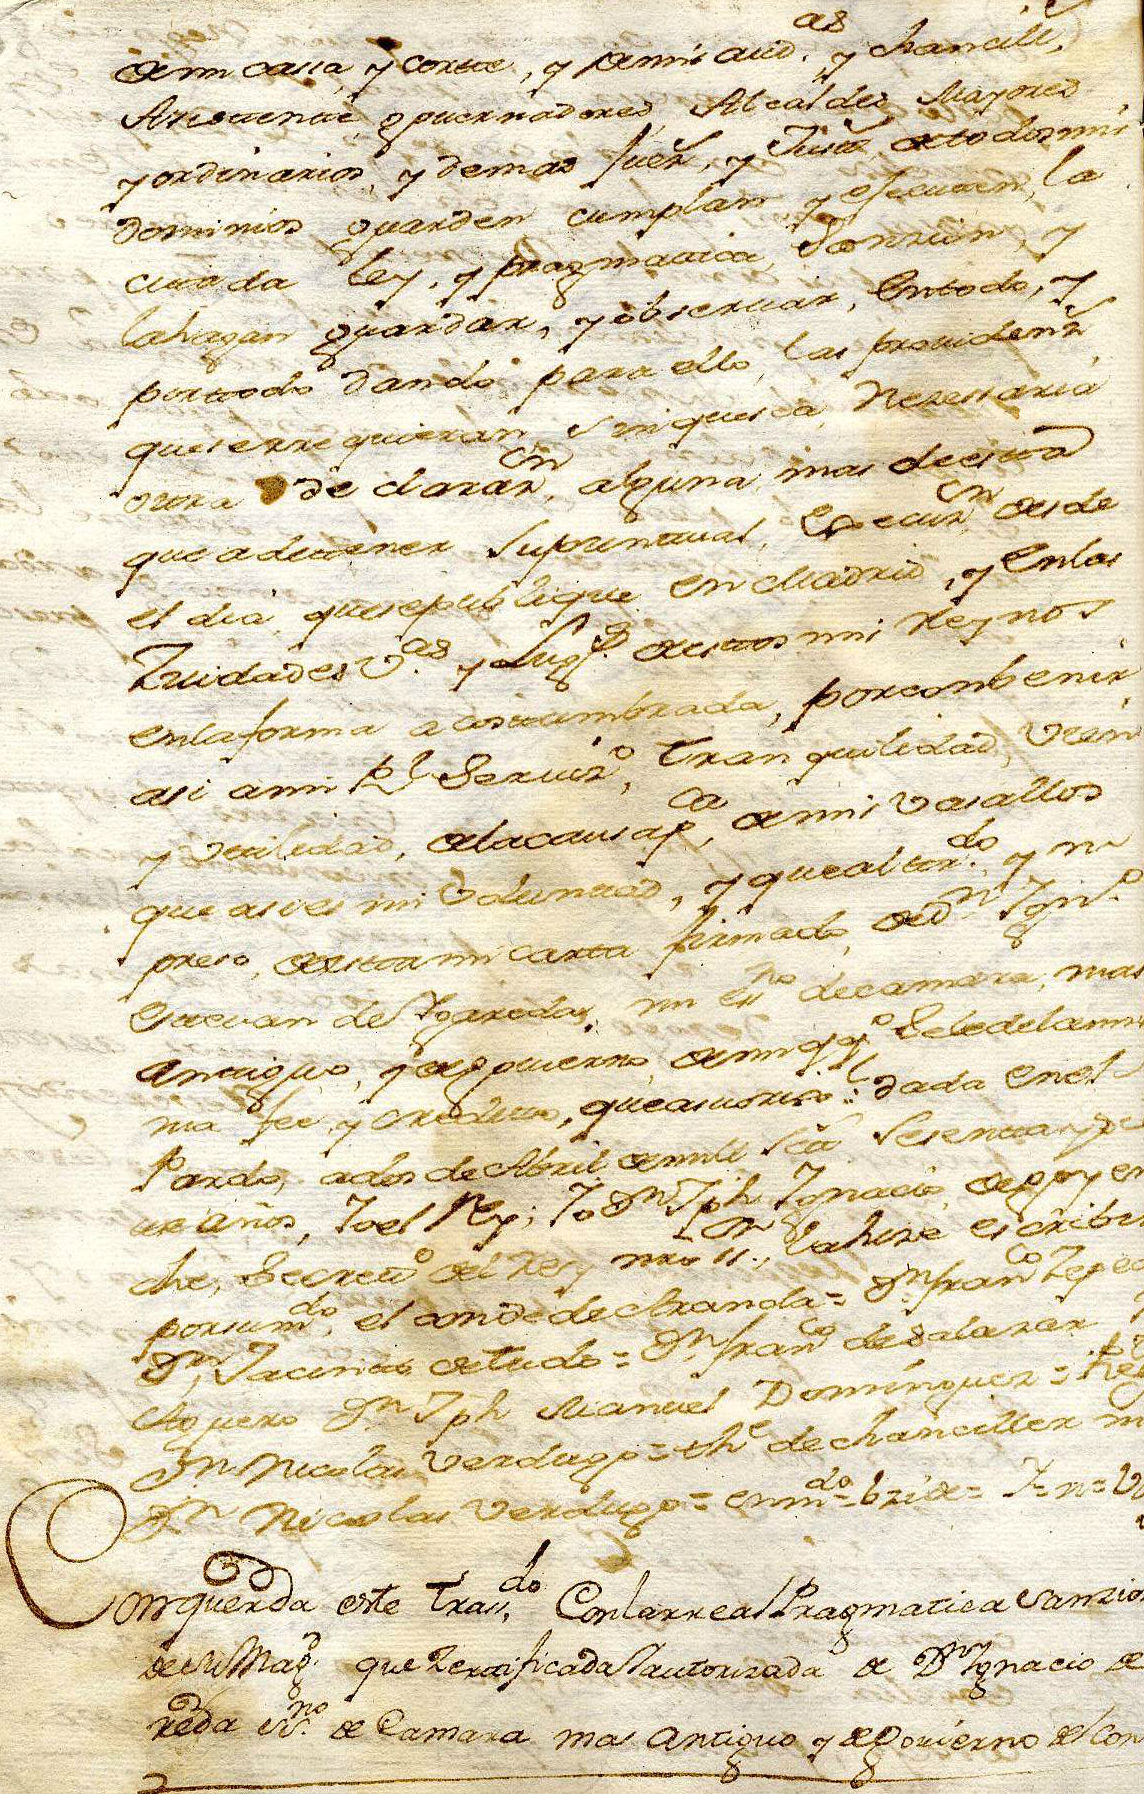 de mi cassa, y corte, y de mis aud.as y chancill.
Asistente gouernadores, Alcaldes Mayores
y ordinarios, y demas Juez, y Justz de todos mis
dominios guarden cumplan y executen, la
citada ley, y pragmatica Sanzion, y
la hagan guardar, y observar, en todo, y
por todo dando para ello, las providenz
que se rrequieran, sin que sea Nezessaria
otra de clarazn alguna, mas de esta
que a de tener su puntual, Execuzn desde
el dia que se publique en Madrid, y en las
Ziudades v.as y Lug.s de estos mis Reynos
en la forma acostumbrada, por conbenir
asi a mi Rl Servizo, tranquilidad, vien
y vtilidad, de la causa pca, de mis vasallos
que asi es mi voluntad, y que al tr.do ym
preso, de esta mi carta firmado, de Dn Ygn.o
Estevan de Ygareda, mi essno de camara, mas
antiguo, y de govierno, de mi Se le de la mis
ma fee, y credito, que a su dada en el
Pardo, a dos de Abril de mill Sesenta y
te años, Yo el Rey; Yo Dn Jph Ygnacio, de goyene
che, Secreto del Rey nro Sr., la hize escribir
por su mdo, el conde de Aranda = Dn franco Zepeda
Dn, Jacinto de tudo = Dn, franco de Salazar
Aguero Dn Jph Manuel Dominguez =
Dn Nicolas Verdugo = the de chanciller m
Dn Nicolas Verdugo = enmdo =
Conquerda este trass.do Con la rreal Pragmatica sanzion
de su Mag.d que Zertificada autorizada de Dn Ygnacio de
reda essno de Camara mas antiguo y de Govierno del Con